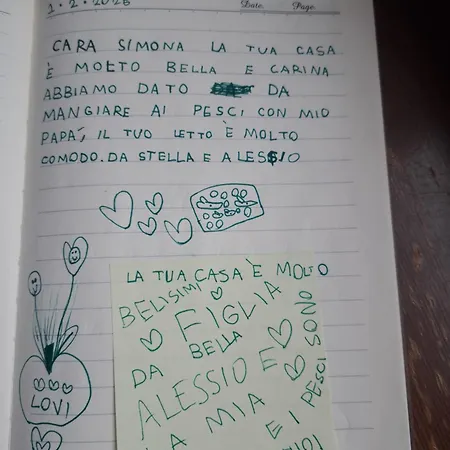 1.2.2026
Date. Page.
CARA SIMONA LA TUA CASA
È MOLTO BELLA E CARINA
ABBIAMO DATO DA
MANGIARE AI PESCI CON MIO
PAPÀ, IL TUO LETTO È MOLTO
COMODO. DA STELLA E ALESSIO
LA TUA CASA È MOLTO
BELISIMI
FIGLIA
BELLA
DA
ALESSIO E
LA MIA
E I PESCI SONO
LOVI